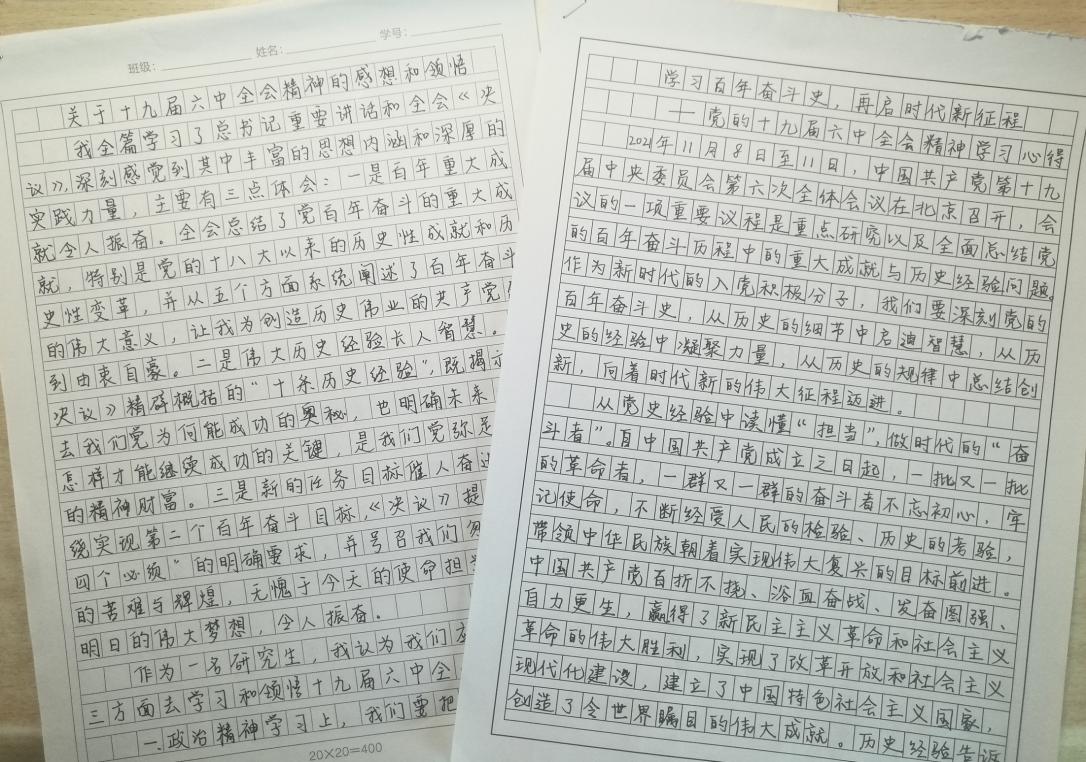 班级： 姓名： 学号：
关于十九届六中全会精神的感想和领悟
我全篇学习了总书记重要讲话和全会《决
议》，深刻感觉到其中丰富的思想内涵和深厚的
实践力量，主要有三点体会：一是百年重大成
就令人振奋。全会总结了党百年奋斗的重大成
就，特别是党的十八大以来的历史性成就和历
史性变革，并从五个方面系统阐述了百年奋斗
的伟大意义，让我为创造历史伟业的共产党
到由衷自豪。二是伟大历史经验长人智慧。
决议》精辟概括的“十条历史经验”，既揭示
去我们党为何能成功的奥秘，也明确未来
怎样才能继续成功的关键，是我们党弥足
的精神财富。三是新的任务目标催人奋进
绕实现第二个百年奋斗目标，《决议》提
四个必须”的明确要求，并号召我们勿
的苦难与辉煌，无愧于今天的使命担当
明日的伟大梦想，令人振奋。
作为一名研究生，我认为我们
三方面去学习和领悟十九届六中全
一、政治精神学习上，我们要把
20×20=400
学习百年奋斗史，再启时代新征程
——党的十九届六中全会精神学习心得
2021年11月8日至11日，中国共产党第十九
届中央委员会第六次全体会议在北京召开，会
议的一项重要议程是重点研究以及全面总结党
的百年奋斗历程中的重大成就与历史经验问题。
作为新时代的入党积极分子，我们要深刻党的
百年奋斗史，从历史的细节中启迪智慧，从历
史的经验中凝聚力量，从历史的规律中总结创
新，向着时代新的伟大征程迈进。
从党史经验中读懂“担当”，做时代的“奋
斗者”。自中国共产党成立之日起，一批又一批
的革命者，一群又一群的奋斗者不忘初心，牢
记使命，不断经受人民的检验、历史的考验，
带领中华民族朝着实现伟大复兴的目标前进。
中国共产党百折不挠、浴血奋战、发奋图强、
自力更生，赢得了新民主主义革命和社会主义
革命的伟大胜利，实现了改革开放和社会主义
现代化建设，建立了中国特色社会主义国家，
创造了令世界瞩目的伟大成就。历史经验告诉